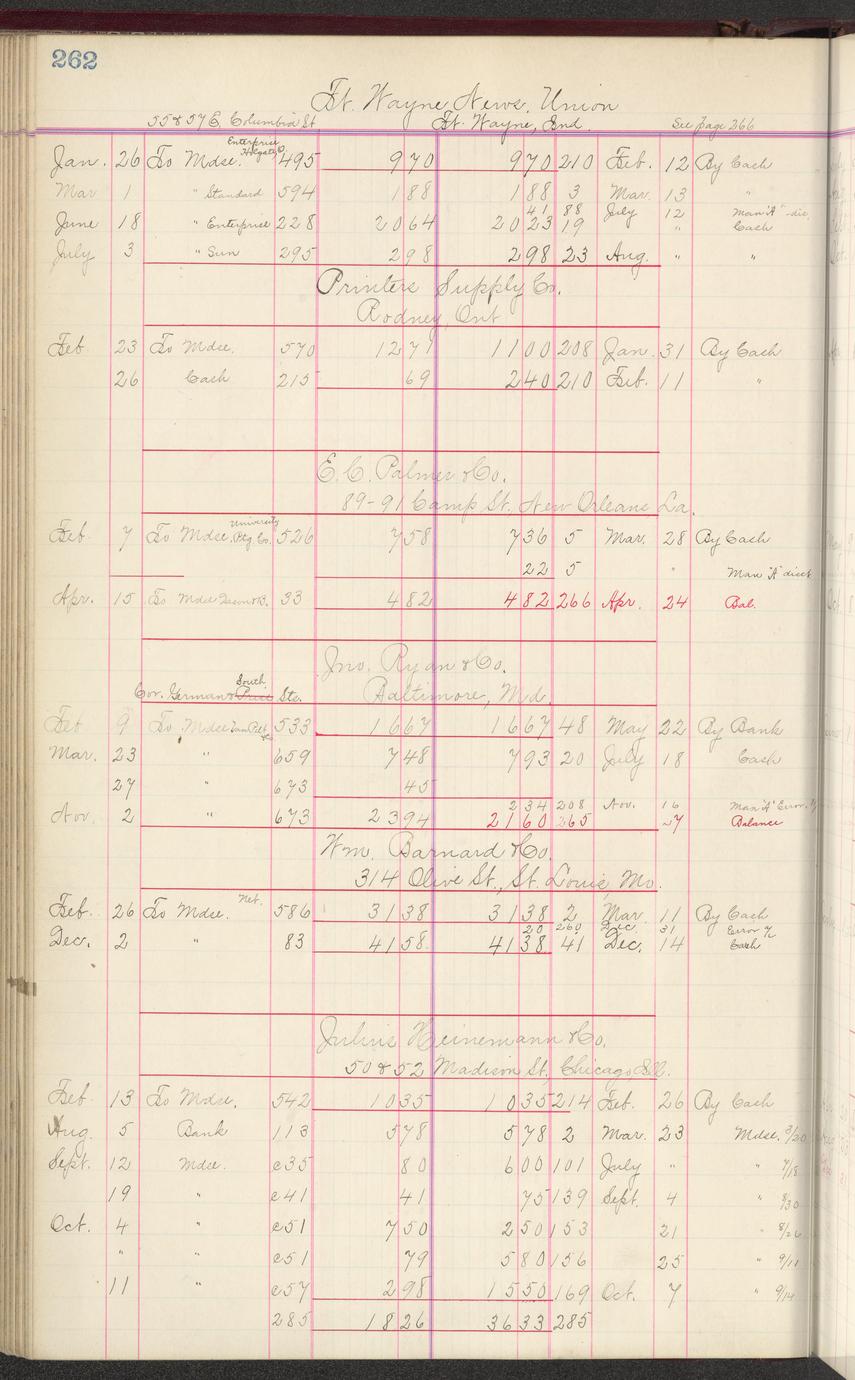 262
Ft. Wayne News, Union
55 & 57 E. Columbia St Ft. Wayne, Ind. See page 266
Enterprise
Jan. 26 To Mdse. Holgate O. 495 970 970 210 Feb. 12 By Cash
Mar 1 " Standard 594 188 188 3 Mar. 13 "
41 88 July 12 Man "A" - dis.
June 18 " Enterprise 228 2064 2023 19 " Cash
July 3 " Sun 295 298 298 23 Aug. " "
Printers Supply Co.
Rodney, Ont
Feb. 23 To Mdse. 570 1271 1100 208 Jan. 31 By Cash
26 Cash 215 69 240 210 Feb. 11 "
E. C. Palmer & Co.
89-91 Camp St. New Orleans La.
University
Feb. 7 To Mdse. Ptg Co. 526 758 736 5 Mar. 28 By Cash
22 5 " Man "A" disct
Apr. 15 To Mdse 33 482 482 266 Apr. 24 Bal.
Jno. Ryan & Co.
South
Cor. German & Price Sts. Baltimore, Md.
Feb 9 To Mdse 533 1667 1667 48 May 22 By Bank
Mar. 23 " 659 748 793 20 July 18 Cash
27 " 673 45
234 208 Nov. 16 Man "A" Error
Nov. 2 " 673 2394 2160 265 27 Balance
Wm. Barnard & Co.
314 Olive St., St. Louis, Mo.
Net.
Feb. 26 To Mdse. 586 3138 3138 2 Mar. 11 By Cash
20 260 Dec. 31 Error
Dec. 2 " 83 4158 4138 41 Dec. 14 Cash
Julius Heinemann & Co.
50 & 52 Madison St., Chicago Ill.
Feb. 13 To Mdse. 542 1035 1035 214 Feb. 26 By Cash
Aug. 5 Bank 113 578 578 2 Mar. 23 Mdse. 3/20
Sept. 12 Mdse. c35 80 600 101 July " " 7/18
19 " c41 41 75 139 Sept. 4 " 8/30
Oct. 4 " c51 750 250 153 21 " 8/26
" " c51 79 580 156 25 " 9/11
11 " c57 298 1550 169 Oct. 7 " 9/14
285 1826 3633 285